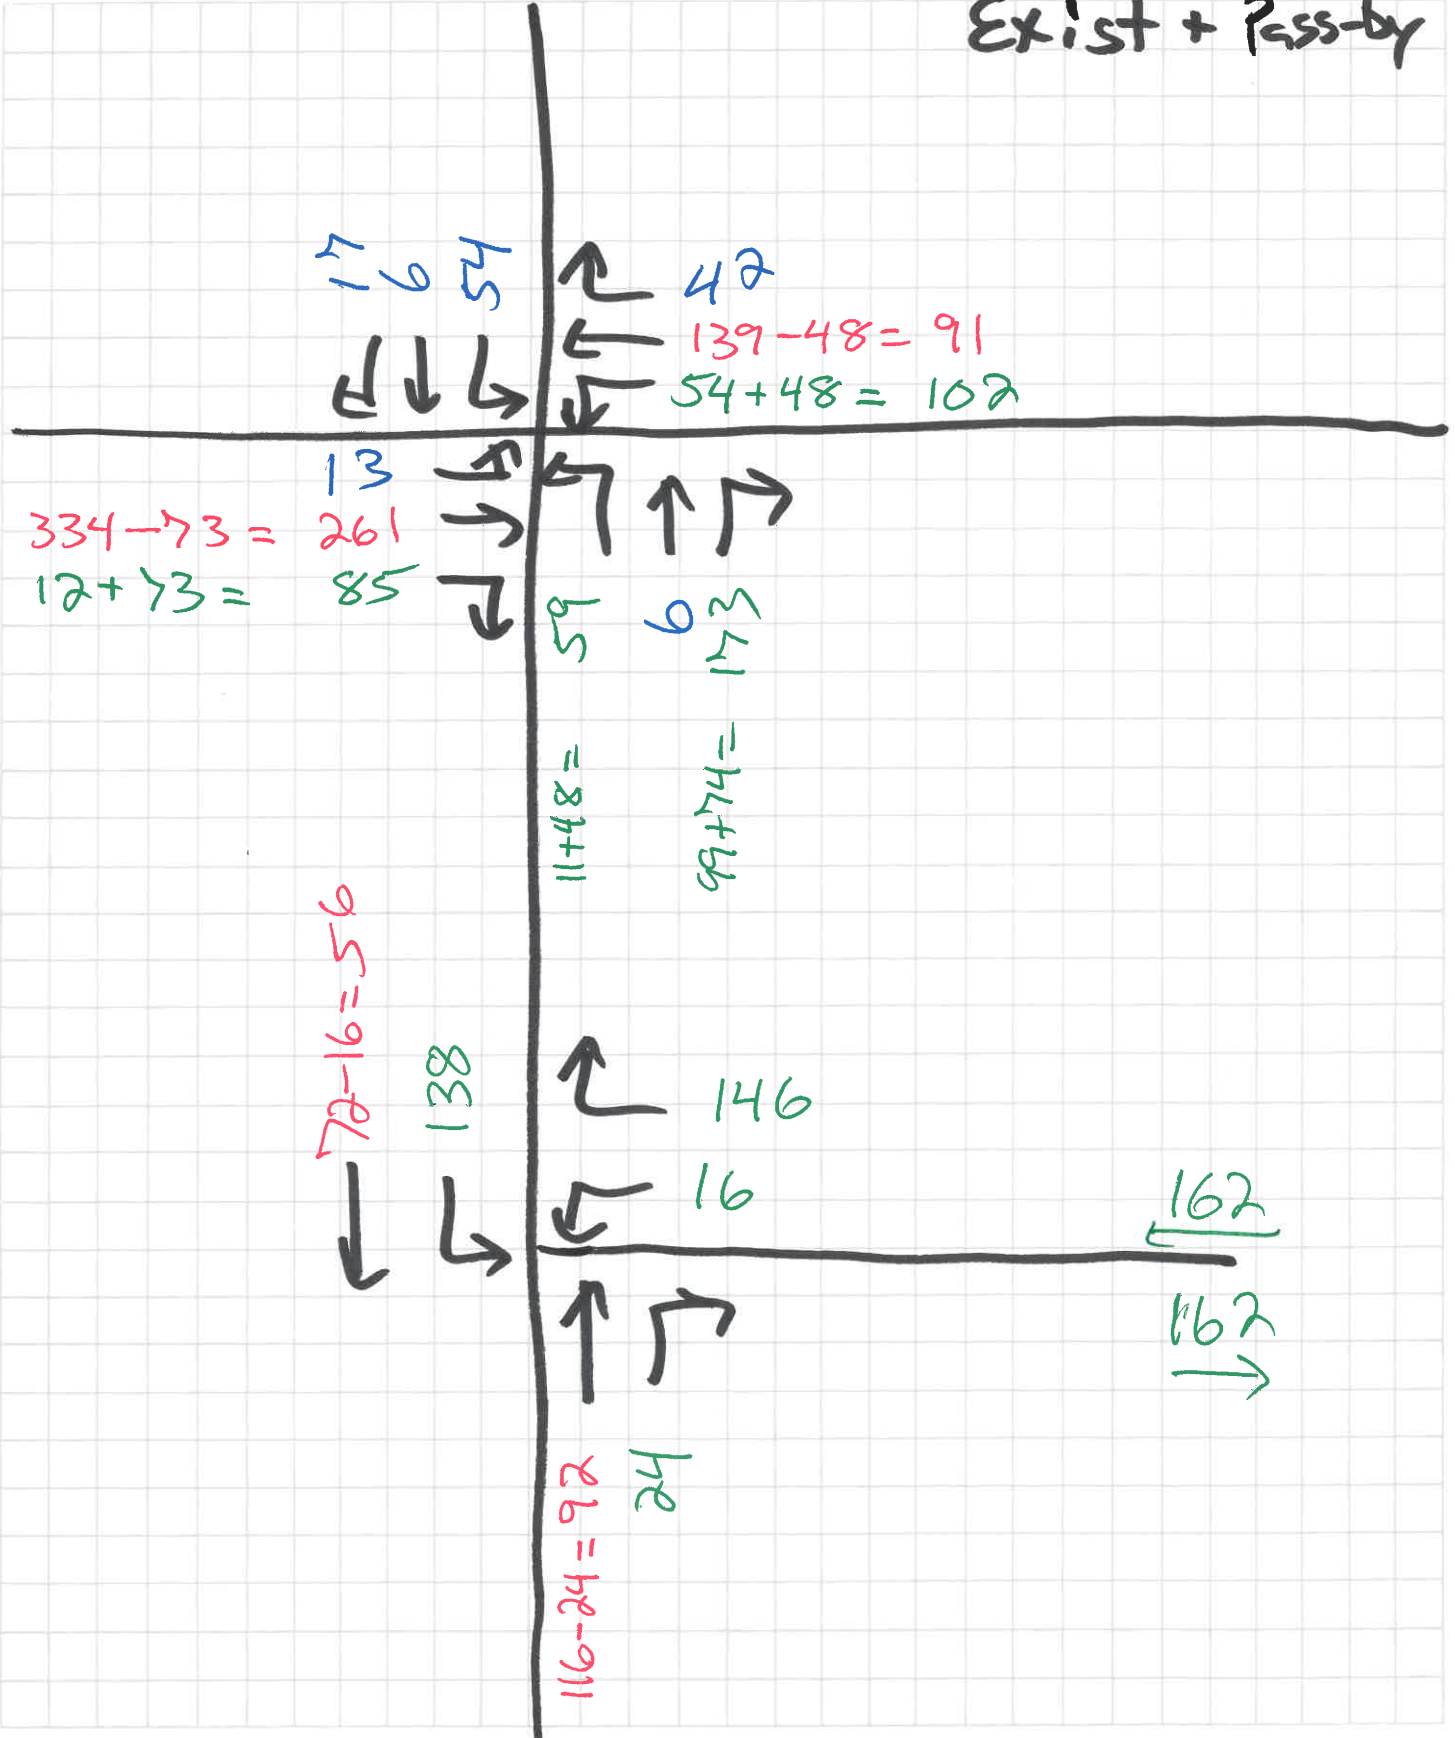 Exist + Pass-by
17
6
54
42
139-48= 91
54+48= 102
13
334-73= 261
12+73= 85
11+48= 59
6
99+74= 173
72-16=56
138
146
16
162
162
116-24=92
24